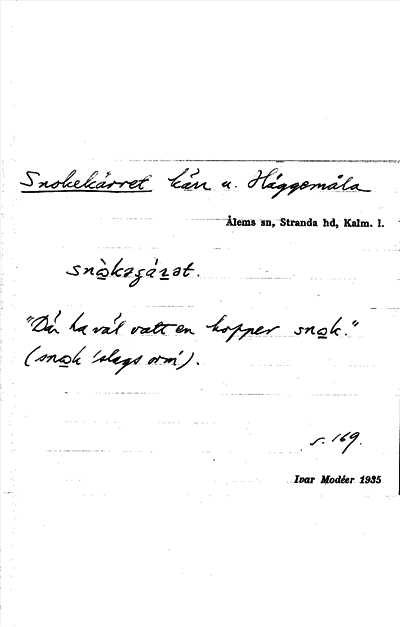 Snokekärret kärr u. Häggemåla
Ålems sn, Stranda hd, Kalm. l.
"Dä ha väl vatt en hopper snok."
(snok 'slags orm').
s. 169.
Ivar Modéer 1935